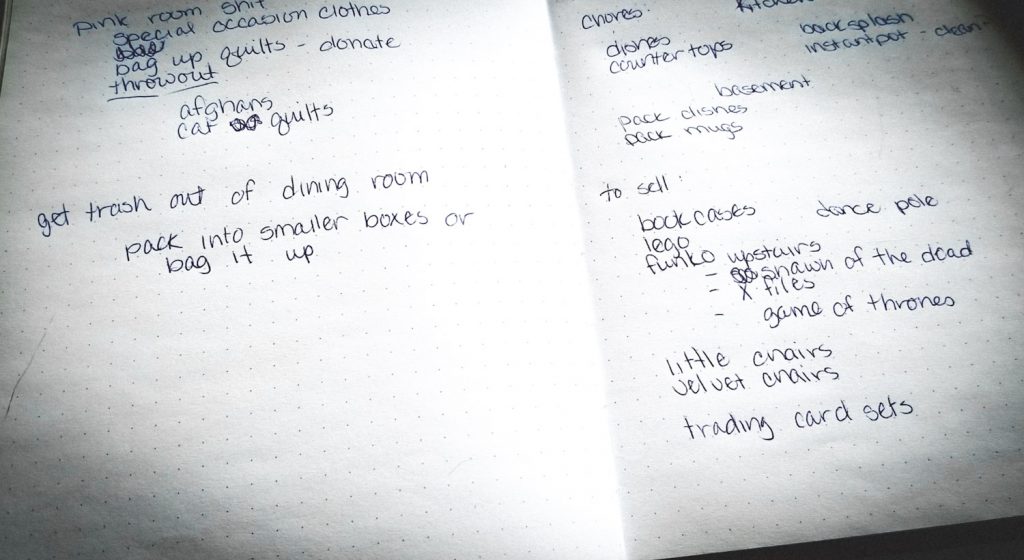 pink room shit
special occasion clothes
bag up quilts - donate
throwout
afghans
cat quilts
get trash out of dining room
pack into smaller boxes or
bag it up
chores: kitchen
dishes backsplash
countertops instantpot - clean
basement
pack dishes
pack mugs
to sell:
bookcases dance pole
lego
funko upstairs
- shawn of the dead
- X files
- game of thrones
little chairs
velvet chairs
trading card sets